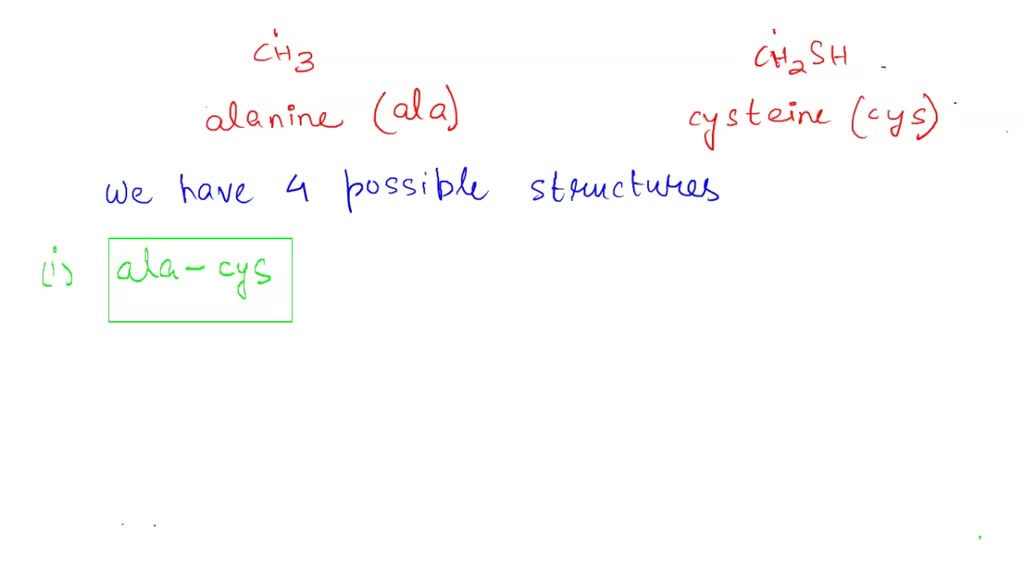 CH3 CH2SH
alanine (ala) cysteine (cys)
we have 4 possible structures
(i) ala-cys